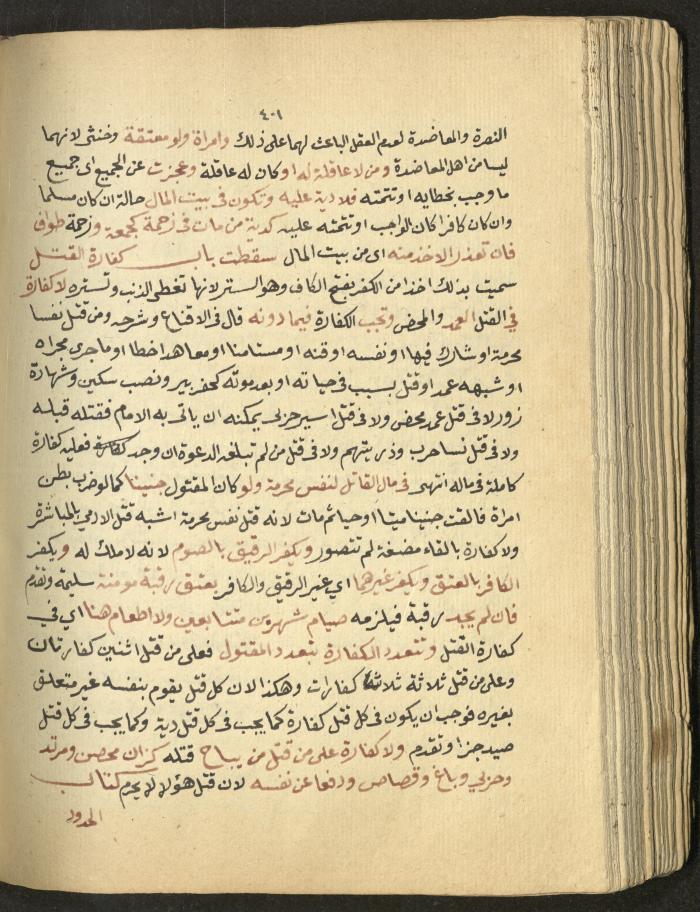 ٤٠١
النصرة والمعاضدة لعدم العقل الباعث لهما على ذلك وامراة ولو معتقة وخنثى لانهما
ليسا من اهل المعاضدة ومن لا عاقلة له او كان له عاقلة وعجزت عن الجميع اى جميع
ما وجب بخطايه او تتمته فلا دية عليه وتكون فى بيت المال حالة ان كان مسلما
وان كان كافرا كان الواجب او تتمته عليه كدية من مات فى زحمة كجمعة وزحمة طواف
فان تعذر الاخذ منه اى من بيت المال سقطت باب كفارة القتل
سميت بذلك اخذا من الكفر بفتح الكاف وهو الستر لانها تغطى الذنب وتستره لا كفارة
في القتل العمد والمحض وتجب الكفارة فيما دونه قال فى الاقناع وشرحه ومن قتل نفسا
محرمة او شارك فيها او نفسه او قنه او مستامنا او معاهدا خطا او ما جرى مجراه
او شبهه عمد او قتل بسبب فى حياته او بعد موته كحفر بير ونصب سكين وشهادة
زور لا فى قتل عمد محض ولا فى قتل اسير حربى يمكنه ان ياتى به الامام فقتله قبله
ولا فى قتل نسا حرب وذريتهم ولا فى قتل من لم تبلغه الدعوة ان وجد فعليه كفارة
كاملة فى ماله انتهى فى مال القاتل لنفس محرمة ولو كان المقتول جنينا كما لو ضرب بطن
امراة فالقت جنينا ميتا او حيا ثم مات لانه قتل نفس محرمة اشبه قتل الادمي بالمباشرة
ولا كفارة بالقاء مضغة لم تتصور ويكفر الرقيق بالصوم لانه لا ملك له ويكفر
الكافر بالعتق ويكفر غيرهما اي غير الرقيق والكافر بعتق رقبة مومنة سليمة وتقدم
فان لم يجد رقبة فيلزمه صيام شهرين متتابعين ولا اطعام هنا اي في
كفارة القتل وتتعدد الكفارة بتعدد المقتول فعلى من قتل اثنين كفارتان
وعلى من قتل ثلاثة ثلاث كفارات وهكذا لان كل قتل يقوم بنفسه غير متعلق
بغيره فوجب ان يكون فى كل قتل كفارة كما يجب فى كل قتل دية وكما يجب فى كل قتل
صيد جزا وتقدم ولا كفارة على من قتل من يباح قتله كزان محصن ومرتد
وحربي وباغ وقصاص ودفعا عن نفسه لان قتل هؤلا لا يحرم كتاب
الحدود